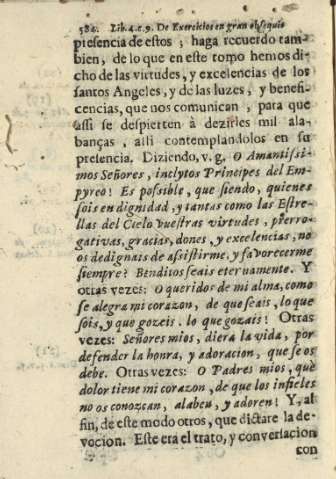 584. Lib. 4. c. 9. De Exercicios en gran obsequio
presencia de estos ; haga recuerdo tam-
bien, de lo que en este tomo hemos di-
cho de las virtudes, y excelencias de los
santos Angeles, y de las luzes, y benefi-
cencias, que nos comunican, para que
assi se despierten à dezirles mil ala-
banças, alli contemplandolos en su
presencia. Diziendo, v. g. O Amantissi-
mos Señores, inclytos Principes del Em-
pyreo! Es possible, que siendo, quienes
sois en dignidad, y tantas como las Estre-
llas del Cielo vuestras virtudes, prerro-
gativas, gracias, dones, y excelencias, no
os dedignais de assistirme, y favorecerme
siempre? Benditos seais eternamente. Y
otras vezes: O queridos de mi alma, como
se alegra mi corazon, de que seais, lo que
sois, y que gozeis. lo que gozais! Otras
vezes: Señores mios, diera la vida, por
defender la honra, y adoracion, que se os
debe. Otras vezes: O Padres mios, que
dolor tiene mi corazon, de que los infieles
no os conozcan, alaben, y adoren! Y, al
fin, de este modo otros, que dictare la de-
vocion. Este era el trato, y conversacion
con